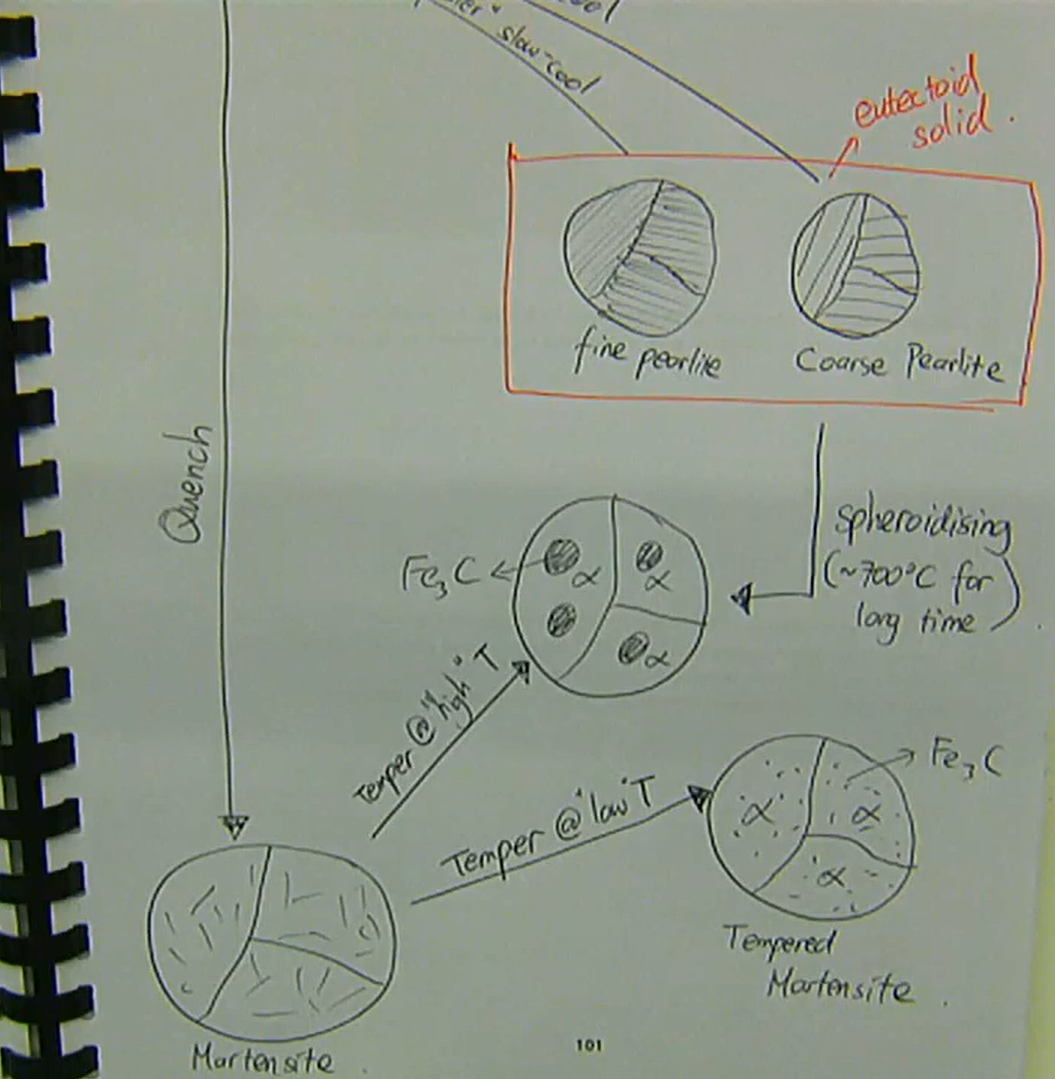 slow-cool
eutectoid
solid.
fine pearlite
Coarse Pearlite
Quench
spheroidising
(~700°C for
long time)
Fe₃C
α
α
α
Temper @ "high" T
Temper @ "low" T
Fe₃C
α
α
α
Tempered
Martensite.
Martensite.
101